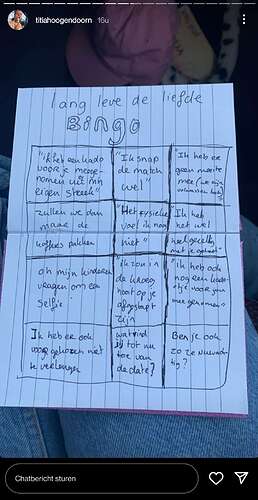 titiahoogendoorn 16u
lang leve de liefde
Bingo
"ik heb een kado
voor je meege-
nomen uit mijn
eigen streek"
"Ik snap
de match
wel"
Ik heb er
geen moeite
mee
zullen we dan
maar de
koffers pakken
"Het fysieke
voel ik nog
niet"
"Ik heb
het wel
heel gezellig
met je gehad"
oh mijn kinderen
vragen om een
selfie
"ik zou in
de kroeg
nooit op je
afgestapt
zijn
"ik heb ook
nog een kado-
tje voor jou
meegenomen"
Ik heb er ook
voor gekozen niet
te verlengen
wat vind
jij tot nu
toe van
de date?
Ben je ook
zo zenuwach-
tig?
Chatbericht sturen